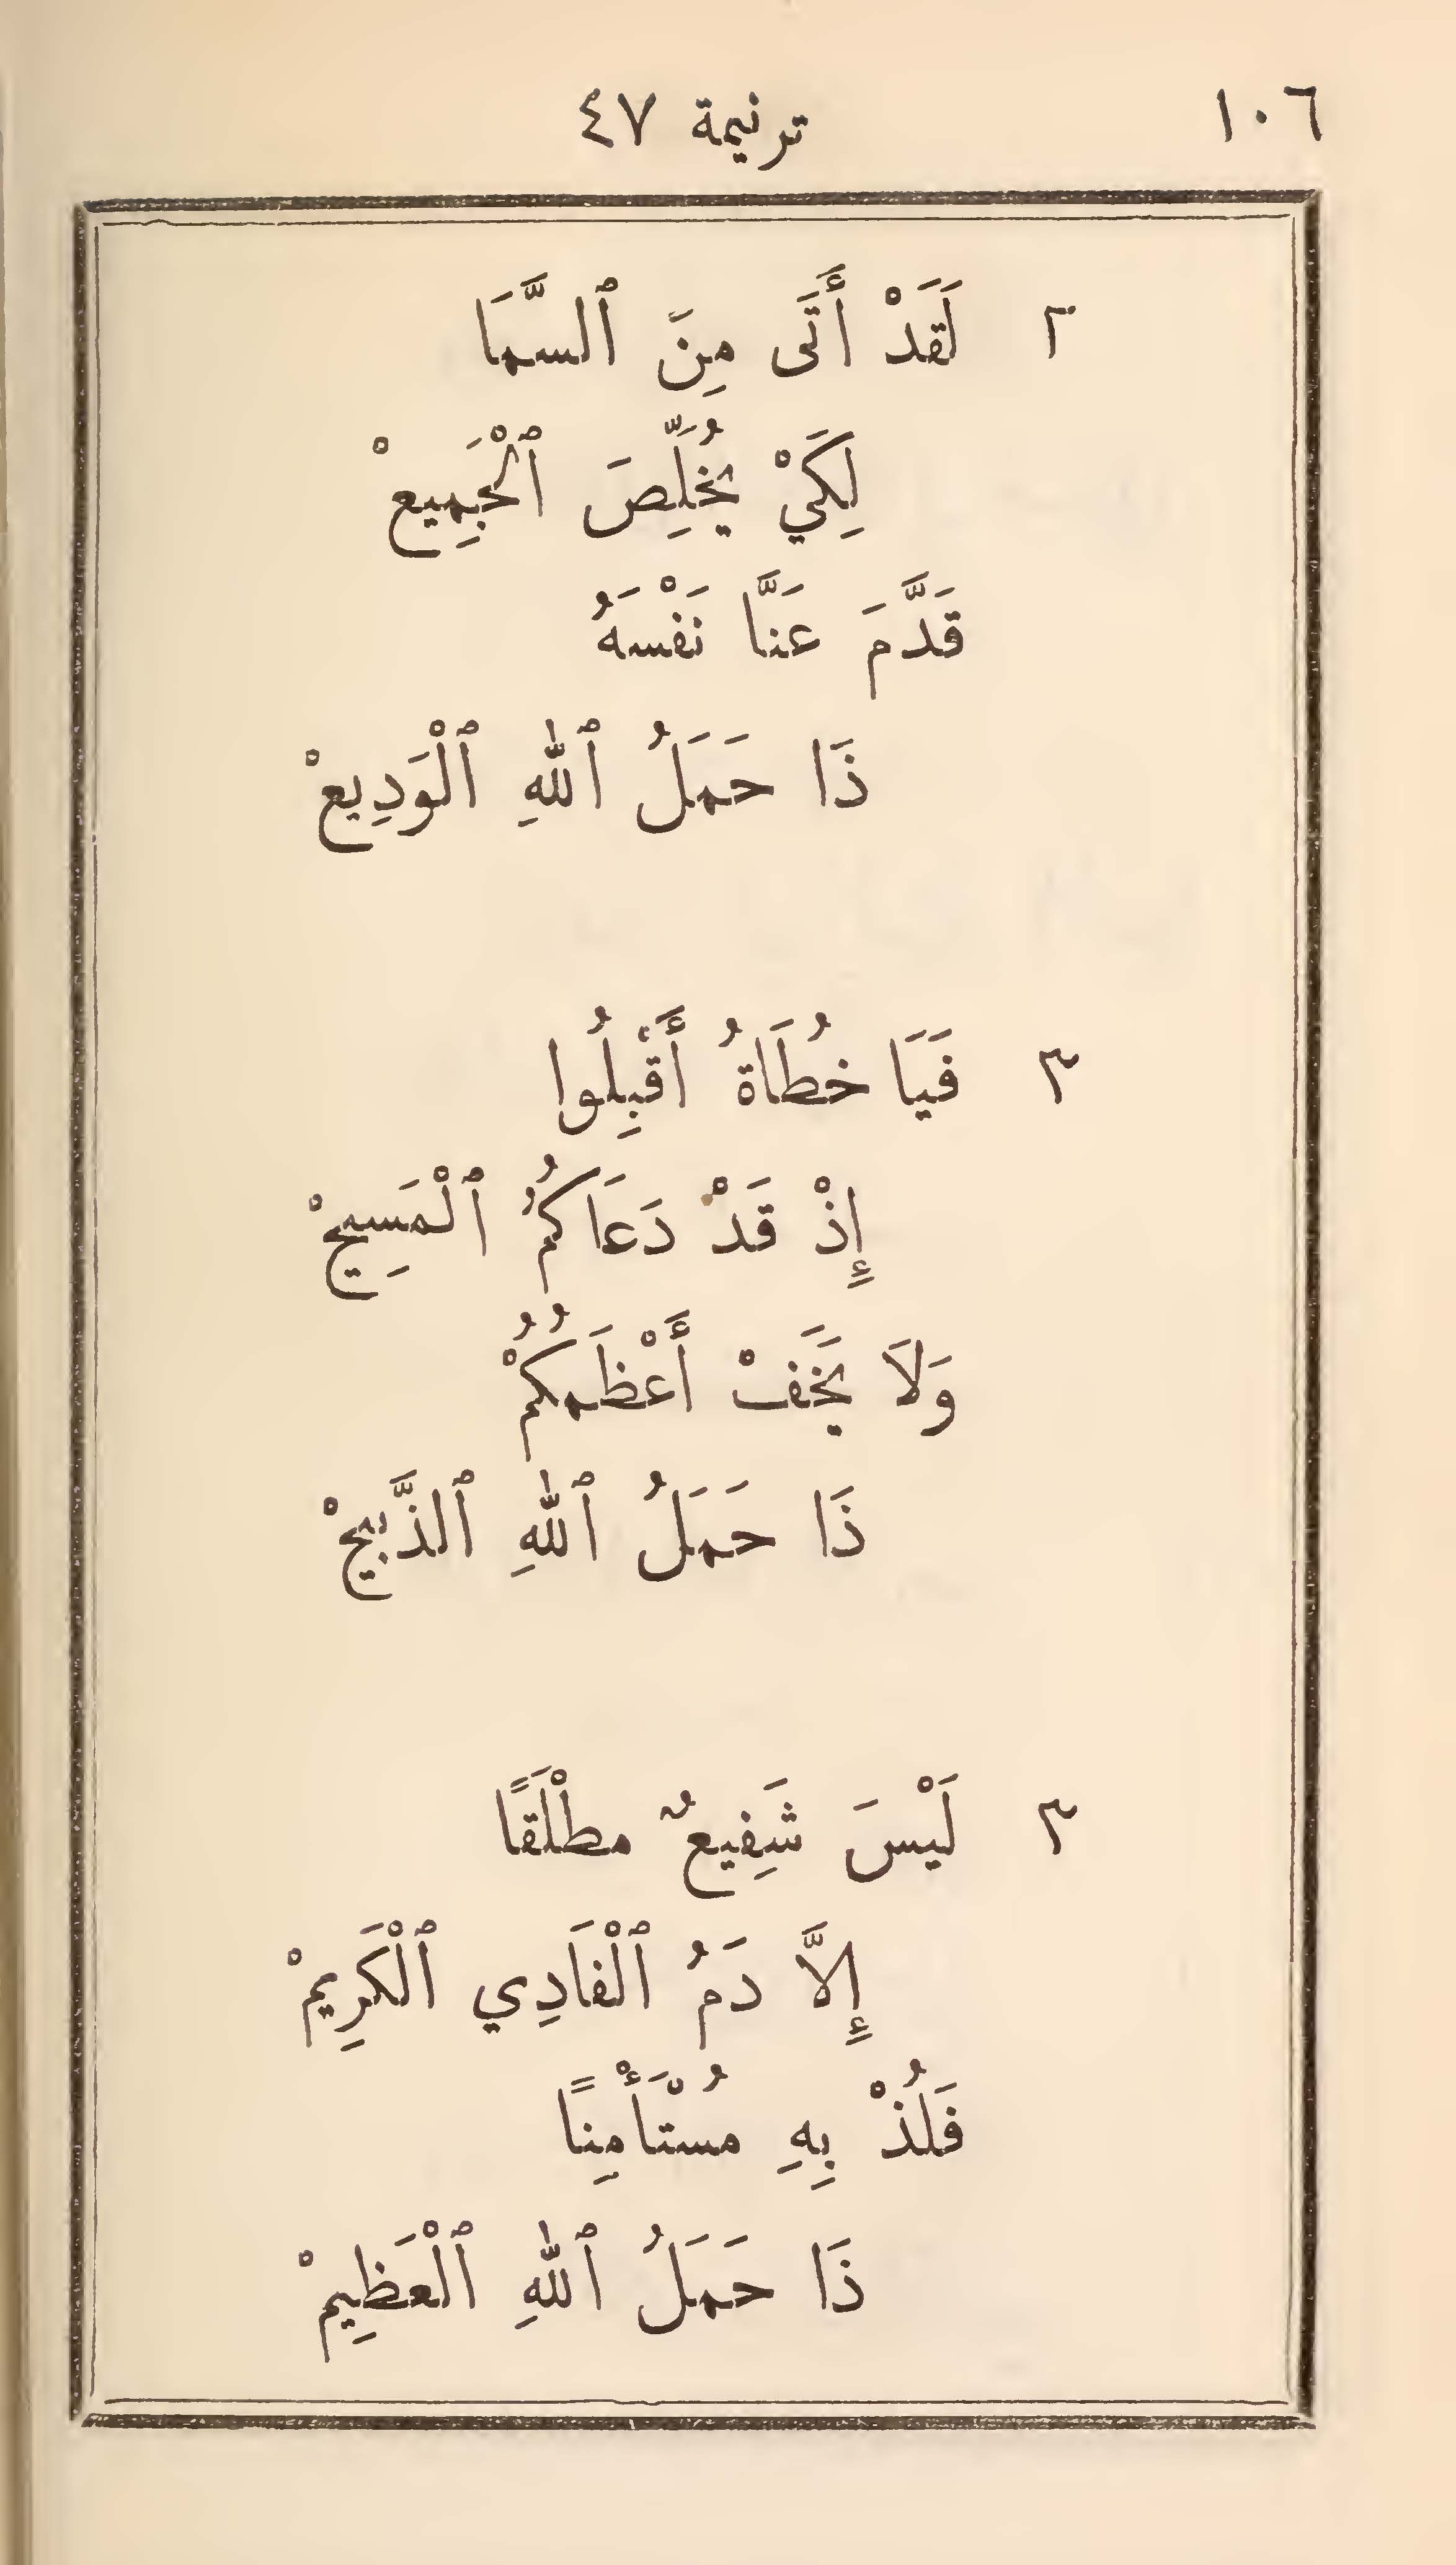 ١٠٦ ترنيمة ٤٧
٢ لَقَدْ أَتَى مِنَ ٱلسَّمَا
لِكَيْ يُخَلِّصَ ٱلْجَمِيعْ
قَدَّمَ عَنَّا نَفْسَهُ
ذَا حَمَلُ ٱللهِ ٱلْوَدِيعْ
٣ فَيَا خُطَاةُ أَقْبِلُوا
إِذْ قَدْ دَعَاكُمُ ٱلْمَسِيحْ
وَلاَ يَخَفْ أَعْظَمُكُمْ
ذَا حَمَلُ ٱللهِ ٱلذَّبِيحْ
٣ لَيْسَ شَفِيعٌ مطْلَقًا
إِلاَّ دَمُ ٱلْفَادِي ٱلْكَرِيمْ
فَلُذْ بِهِ مُسْتَأْمِنًا
ذَا حَمَلُ ٱللهِ ٱلْعَظِيمْ